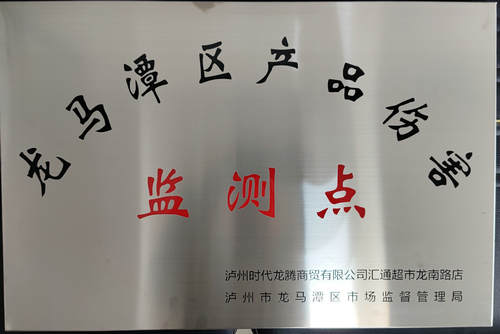 龙马潭区产品伤害
监测点
泸州时代龙腾商贸有限公司汇通超市龙南路店
泸州市龙马潭区市场监督管理局